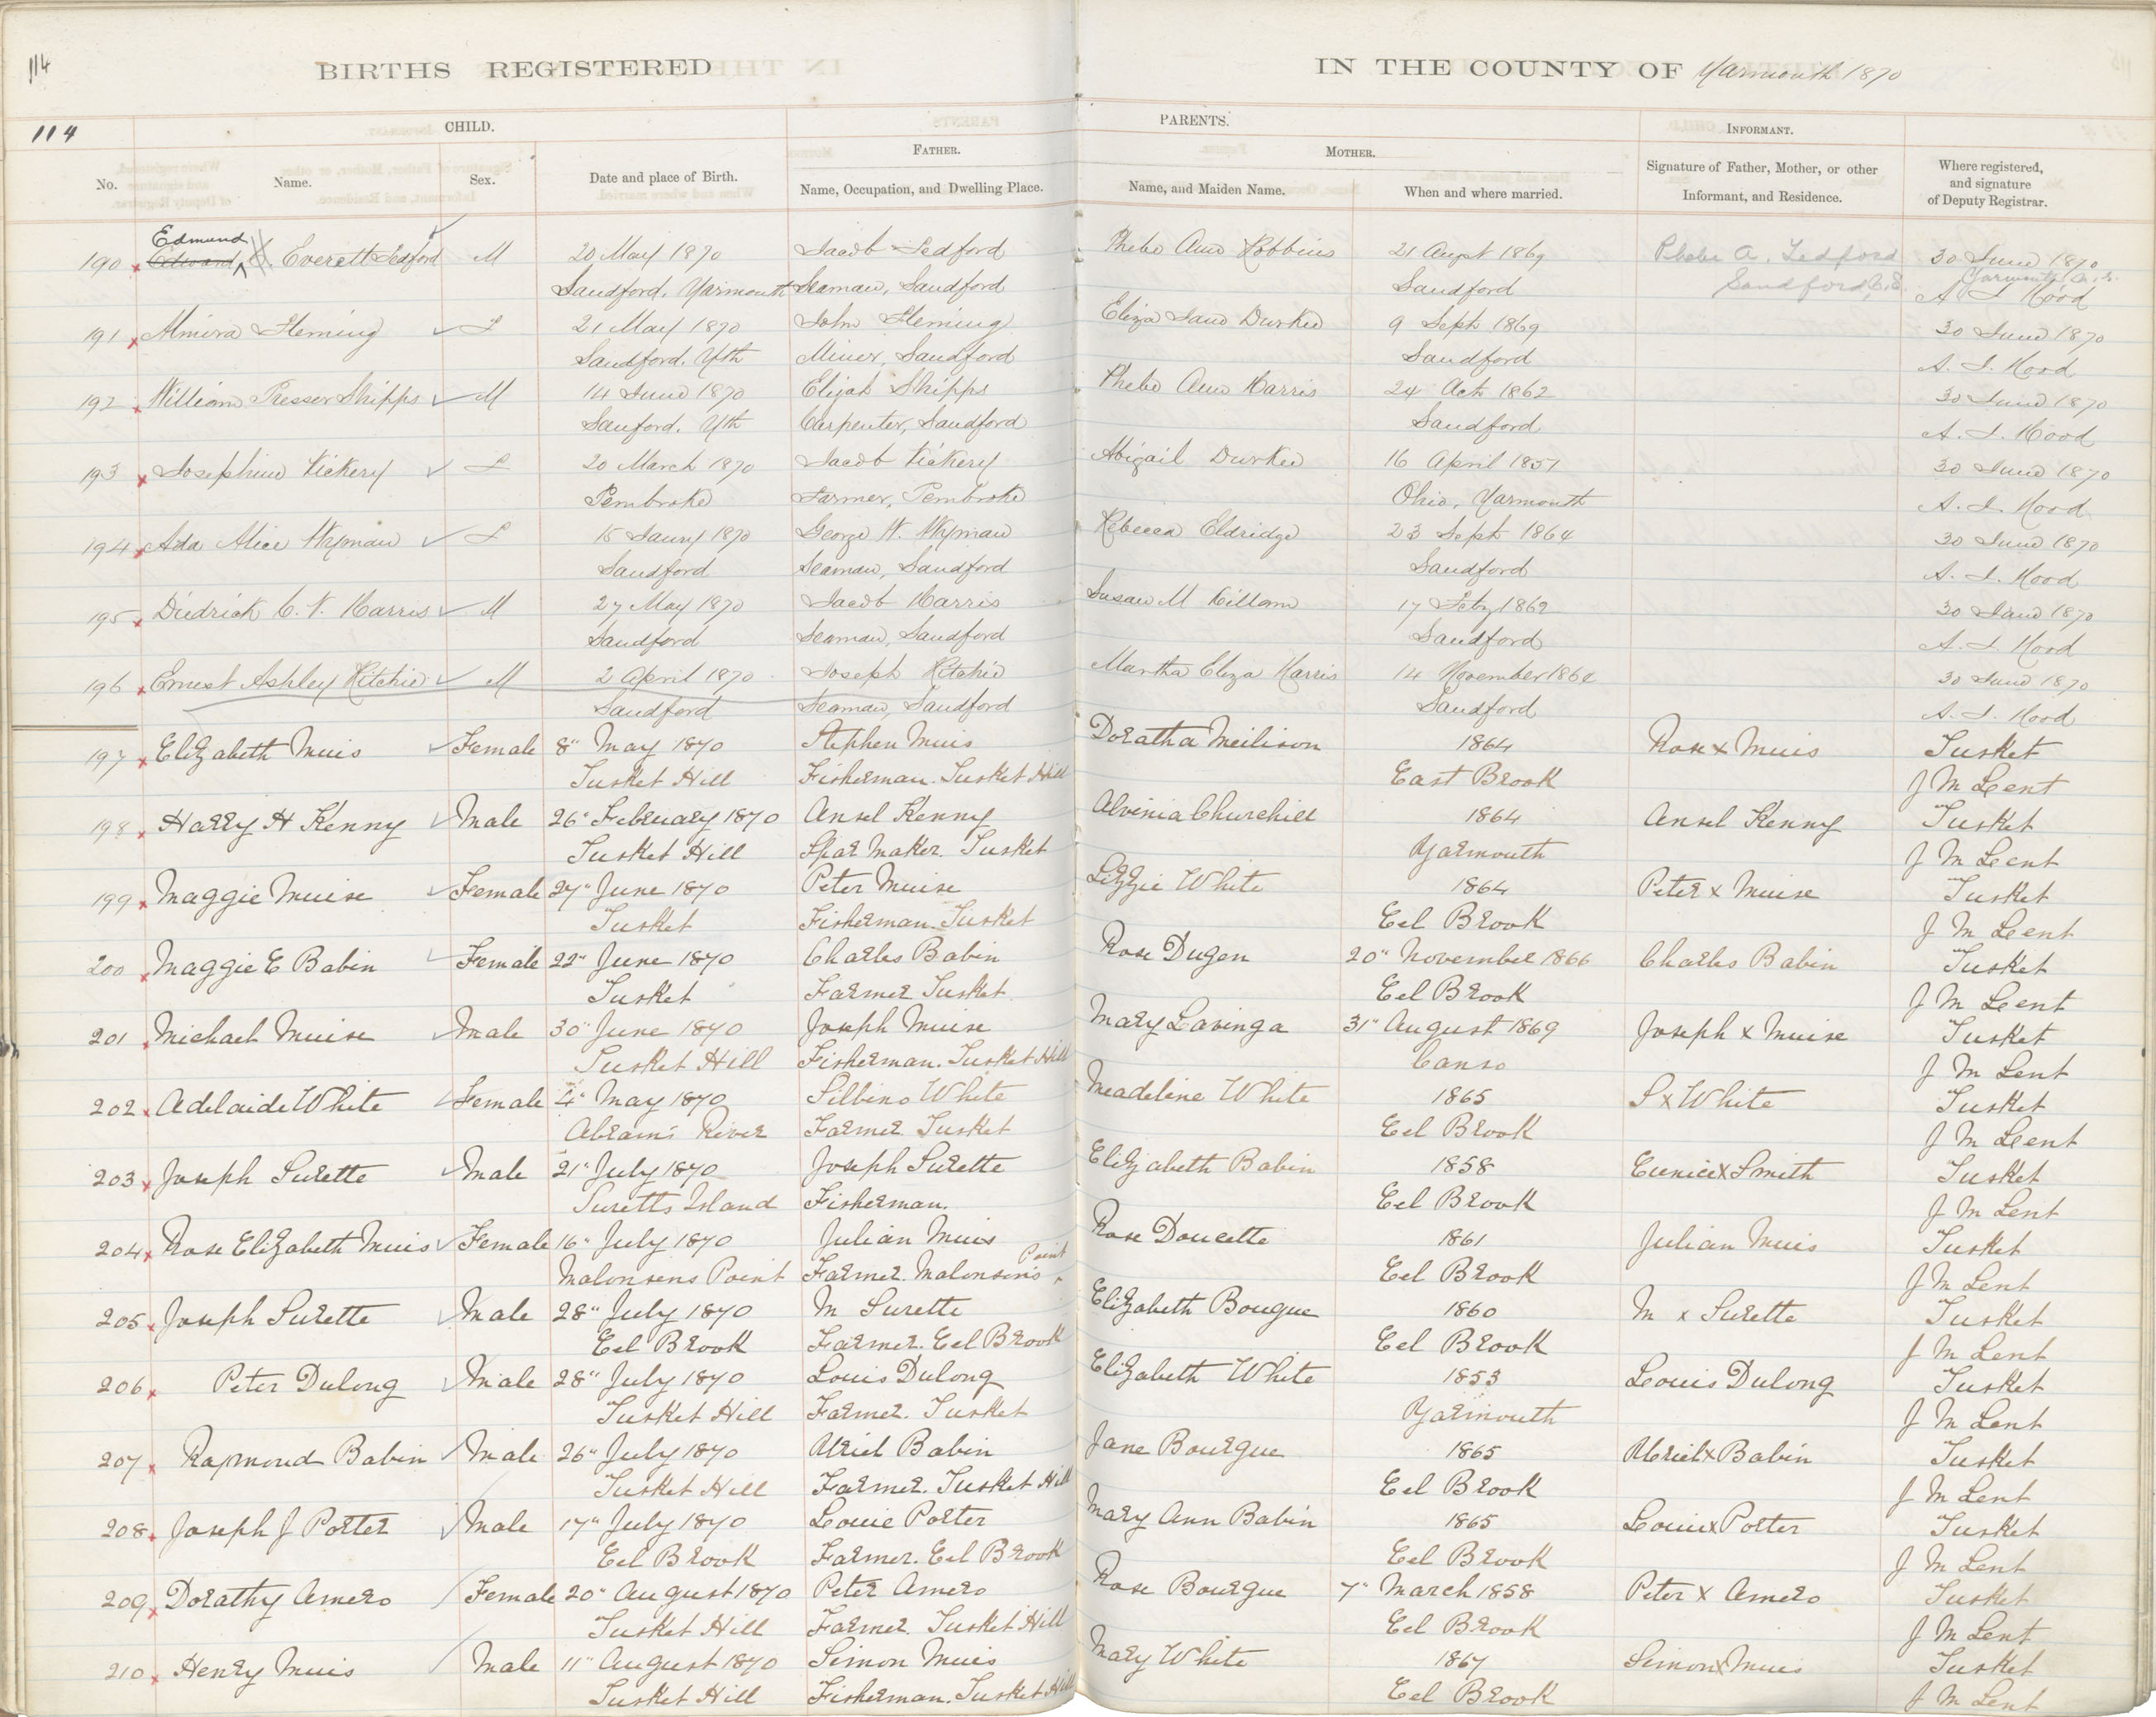 114
BIRTHS REGISTERED IN THE COUNTY OF Yarmouth 1870
114 CHILD. PARENTS. INFORMANT.
FATHER. MOTHER.
No. Name. Sex. Date and place of Birth. Name, Occupation, and Dwelling Place. Name, and Maiden Name. When and where married. Signature of Father, Mother, or other Informant, and Residence. Where registered, and signature of Deputy Registrar.
Edmund
190 Edward Everett Ledford M 20 May 1870 Jacob Ledford Phebe Ann Robbins 21 Augst 1869 Phebe A. Ledford 30 June 1870
Sandford, Yarmouth Seaman, Sandford Sandford Sandford, N.S. Yarmouth, N.S.
A. J. Hood
191 Almira Fleming F 21 May 1870 John Fleming Eliza Jane Durkee 9 Sept 1869 30 June 1870
Sandford, Yth Miner, Sandford Sandford A. J. Hood
192 William Presser Shipps M 14 June 1870 Elijah Shipps Phebe Ann Harris 24 Oct 1862 30 June 1870
Sanford, Yth Carpenter, Sandford Sandford A. J. Hood
193 Josephine Vickery F 20 March 1870 Jacob Vickery Abigail Durkee 16 April 1857 30 June 1870
Pembroke Farmer, Pembroke Ohio, Yarmouth A. J. Hood
194 Ada Alice Wyman F 15 Jauny 1870 George W. Wyman Rebecca Eldridge 23 Sept 1864 30 June 1870
Sandford Seaman, Sandford Sandford A. J. Hood
195 Diedrick C. V. Harris M 27 May 1870 Jacob Harris Susan M Killam 17 Feby 1862 30 June 1870
Sandford Seaman, Sandford Sandford A. J. Hood
196 Ernest Ashley Ritchie M 2 April 1870 Joseph Ritchie Martha Eliza Harris 14 November 1862 30 June 1870
Sandford Seaman, Sandford Sandford A. J. Hood
197 Elizabeth Muis Female 8" May 1870 Stephen Muis Doratha Meilison 1864 Rose x Muis Tusket
Tusket Hill Fisherman. Tusket Hill East Brook J M Lent
198 Harry H Kenny Male 26" February 1870 Ansel Kenny Alvinia Churchill 1864 Ansel Kenny Tusket
Tusket Hill Spar Maker. Tusket Yarmouth J M Lent
199 Maggie Muise Female 27" June 1870 Peter Muise Lizzie White 1864 Peter x Muise Tusket
Tusket Fisherman. Tusket Eel Brook J M Lent
200 Maggie E Babin Female 22" June 1870 Charles Babin Rose Dugen 20" November 1866 Charles Babin Tusket
Tusket Farmer Tusket Eel Brook J M Lent
201 Michael Muise Male 30" June 1870 Joseph Muise Mary Lavinga 31" August 1869 Joseph x Muise Tusket
Tusket Hill Fisherman. Tusket Hill Canso J M Lent
202 Adelaide White Female 4" May 1870 Silbino White Meadeline White 1865 S x White Tusket
Abram's River Farmer. Tusket Eel Brook J M Lent
203 Joseph Surette Male 21" July 1870 Joseph Surette Elizabeth Babin 1858 Eunice x Smith Tusket
Suretts Island Fisherman. Eel Brook J M Lent
204 Rose Elizabeth Muis Female 16" July 1870 Julian Muis Rose Doucette 1861 Julian Muis Tusket
Malonsens Point Farmer. Malonson's Point Eel Brook J M Lent
205 Joseph Surette Male 28" July 1870 M Surette Elizabeth Bougue 1860 M x Surette Tusket
Eel Brook Farmer. Eel Brook Eel Brook J M Lent
206 Peter Dulong Male 28" July 1870 Louis Dulong Elizabeth White 1853 Louis Dulong Tusket
Tusket Hill Farmer. Tusket Yarmouth J M Lent
207 Raymond Babin Male 26" July 1870 Uriel Babin Jane Bourgue 1865 Uriel x Babin Tusket
Tusket Hill Farmer. Tusket Hill Eel Brook J M Lent
208 Joseph J Porter Male 17" July 1870 Louie Porter Mary Ann Babin 1865 Louie x Porter Tusket
Eel Brook Farmer. Eel Brook Eel Brook J M Lent
209 Dorathy Amero Female 20" August 1870 Peter Amero Rose Bourgue 7" March 1858 Peter x Amero Tusket
Tusket Hill Farmer. Tusket Hill Eel Brook J M Lent
210 Henry Muis Male 11" August 1870 Simon Muis Mary White 1867 Simon x Muis Tusket
Tusket Hill Fisherman. Tusket Hill Eel Brook J M Lent